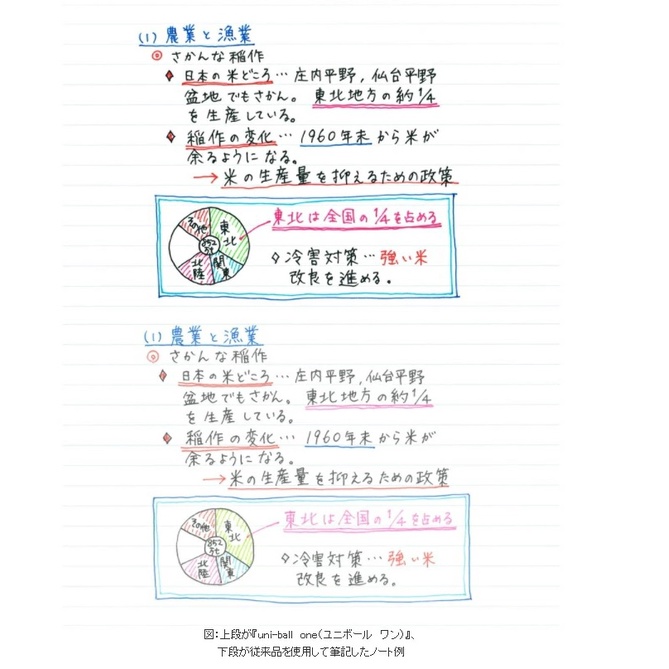 (1) 農業と漁業
◎ さかんな稲作
♦ 日本の米どころ… 庄内平野, 仙台平野
盆地でもさかん。 東北地方の約1/4
を生産している。
♦ 稲作の変化… 1960年末から米が
余るようになる。
→ 米の生産量を抑えるための政策
その他
東北
852万t
関東
北陸
東北は全国の1/4を占める
◇冷害対策…強い米
改良を進める。
(1) 農業と漁業
◎ さかんな稲作
♦ 日本の米どころ… 庄内平野, 仙台平野
盆地でもさかん。 東北地方の約1/4
を生産している。
♦ 稲作の変化… 1960年末から米が
余るようになる。
→ 米の生産量を抑えるための政策
その他
東北
852万t
関東
北陸
東北は全国の1/4を占める
◇冷害対策…強い米
改良を進める。
図:上段が『uni-ball one(ユニボール ワン)』、
下段が従来品を使用して筆記したノート例